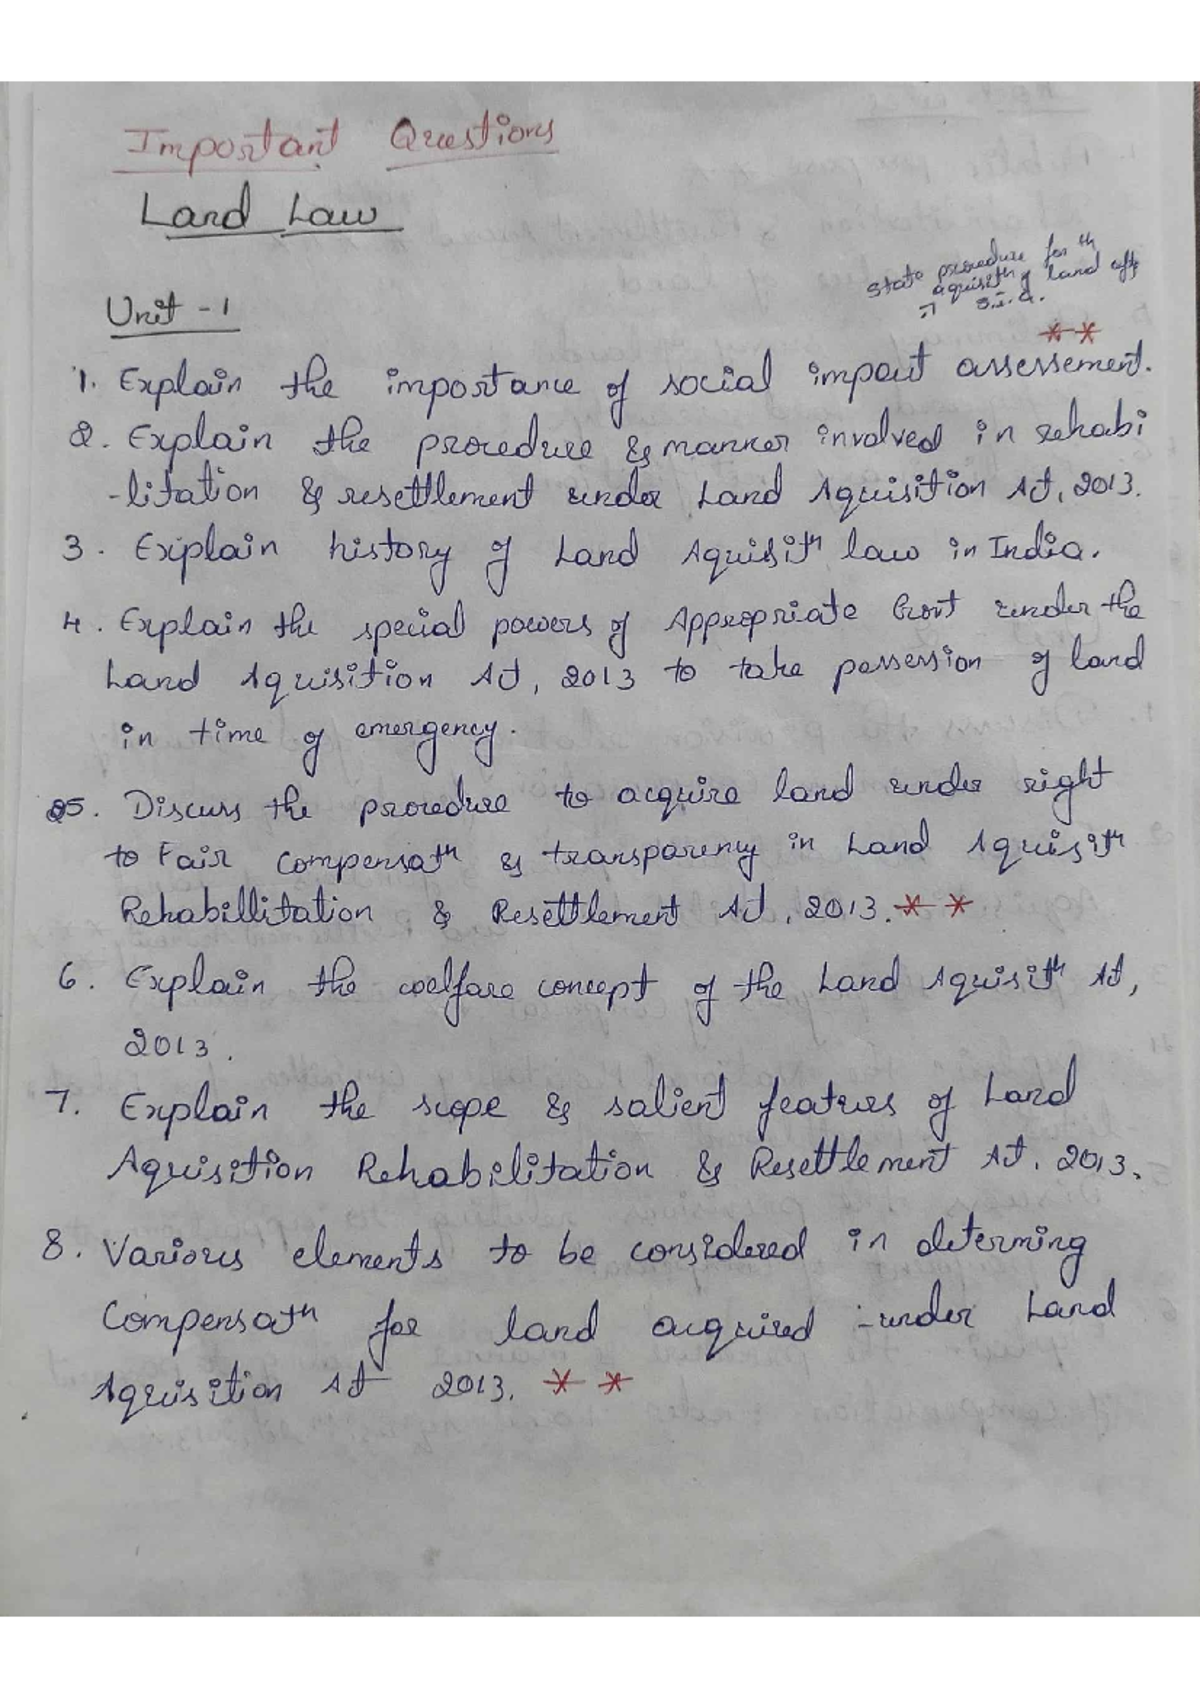 Important Questions
Land Law
State procedure for th
=) aquisith of land aft
S.I.A.
Unit - 1
**
1. Explain the importance of social impact assessement.
2. Explain the procedure & manner involved in rehabi
-litation & resettlement under Land Aquisition Act, 2013.
3. Explain history of Land Aquisith law in India.
4. Explain the special powers of Appropriate Govt under the
Land Aquisition Act, 2013 to take possession of land
in time of emergency.
5. Discuss the procedure to acquire land under right
to Fair Compensath & transparency in Land Aquisith
Rehabillitation & Resettlement Act, 2013. **
6. Explain the welfare concept of the Land Aquisith Act,
2013.
7. Explain the scope & salient featurs of Land
Aquisition Rehabilitation & Resettlement Act. 2013.
8. Various elements to be considered in determing
Compensath for land acquired -under Land
Aquisition Act 2013. **